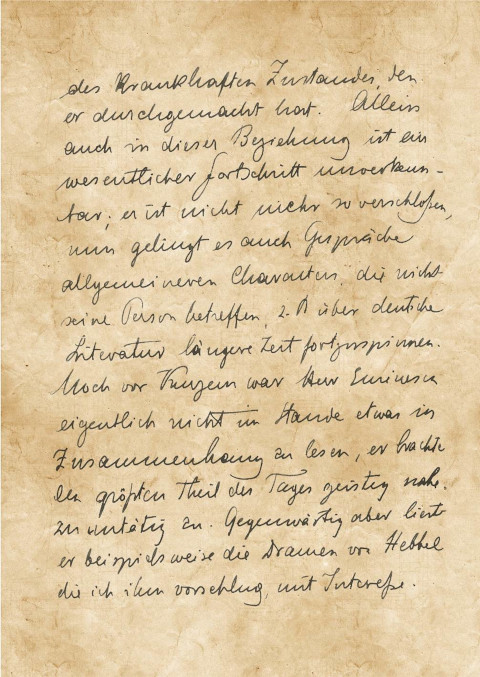 des krankhaften Zustandes, den
er durchgemacht hat. Allein
auch in dieser Beziehung ist ein
wesentlicher Fortschritt unverkenn-
bar; er ist nicht mehr so verschloßen,
nun gelingt es auch Gespräche
allgemeineren Charakters, die nicht
seine Person betreffen, z.B über deutsche
Literatur längere Zeit fortzuspinnen.
Noch vor Kurzem war Herr Eminescu
eigentlich nicht im Stande etwas im
Zusammenhang zu lesen, er brachte
den größten Theil des Tages geistig nahe-
zu untätig zu. Gegenwärtig aber liest
er beispielsweise die Dramen von Hebbel
die ich ihm vorschlug, mit Intereße.